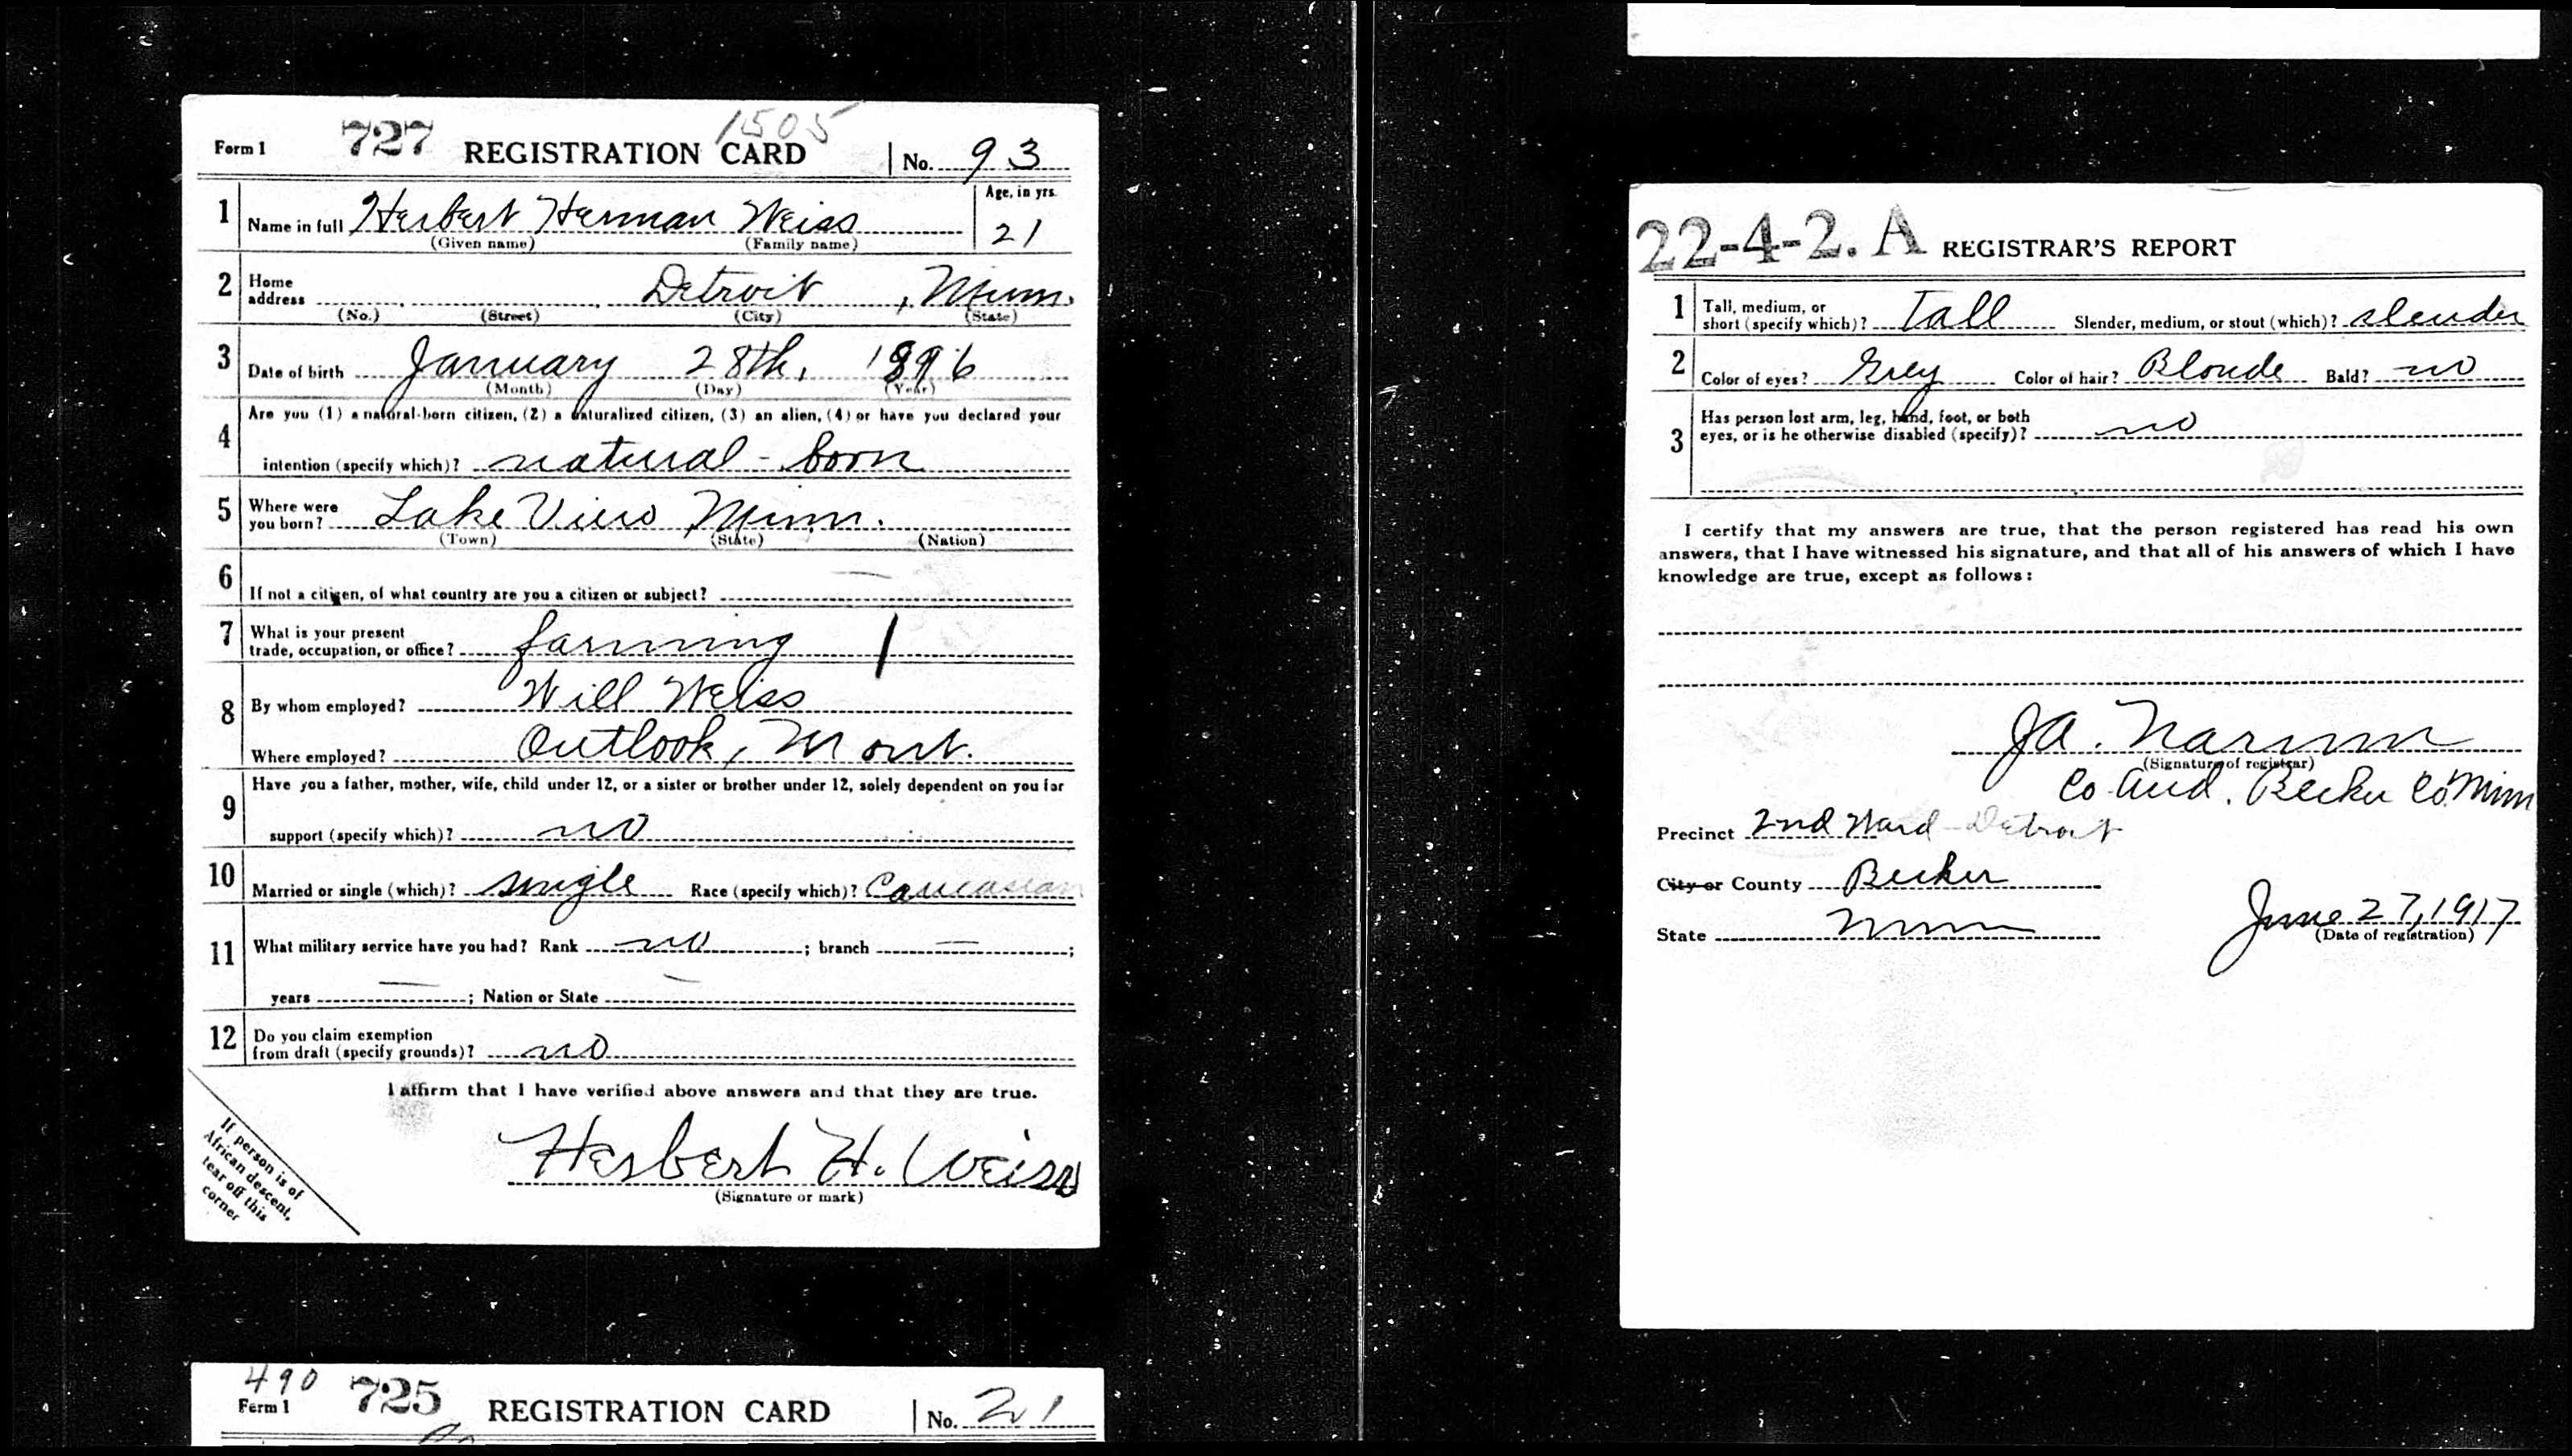 1505
Form 1 727 REGISTRATION CARD No. 93
1 Name in full Herbert Herman Weiss Age, in yrs. 21
(Given name) (Family name)
2 Home address Detroit, Minn.
(No.) (Street) (City) (State)
3 Date of birth January 28th, 1896
(Month) (Day) (Year)
Are you (1) a natural-born citizen, (2) a naturalized citizen, (3) an alien, (4) or have you declared your
4 intention (specify which)? natural-born
5 Where were you born? Lake View Minn.
(Town) (State) (Nation)
6 If not a citizen, of what country are you a citizen or subject? —
7 What is your present trade, occupation, or office? farming
8 By whom employed? Will Weiss
Where employed? Outlook, Mont.
9 Have you a father, mother, wife, child under 12, or a sister or brother under 12, solely dependent on you for
support (specify which)? no
10 Married or single (which)? single Race (specify which)? Caucasian
11 What military service have you had? Rank no ; branch — ;
years — ; Nation or State —
12 Do you claim exemption from draft (specify grounds)? no
I affirm that I have verified above answers and that they are true.
Herbert H. Weiss
(Signature or mark)
If person is of
African descent,
tear off this
corner
490
Form 1 725 REGISTRATION CARD No. 21
22-4-2. A REGISTRAR'S REPORT
1 Tall, medium, or short (specify which)? Tall Slender, medium, or stout (which)? slender
2 Color of eyes? Grey Color of hair? Blonde Bald? no
3 Has person lost arm, leg, hand, foot, or both
eyes, or is he otherwise disabled (specify)? no
I certify that my answers are true, that the person registered has read his own
answers, that I have witnessed his signature, and that all of his answers of which I have
knowledge are true, except as follows:
J A. Narum
(Signature of registrar)
Co Aud. Becker Co. Minn
Precinct 2nd Ward - Detroit
City or County Becker
State Minn June 27, 1917
(Date of registration)